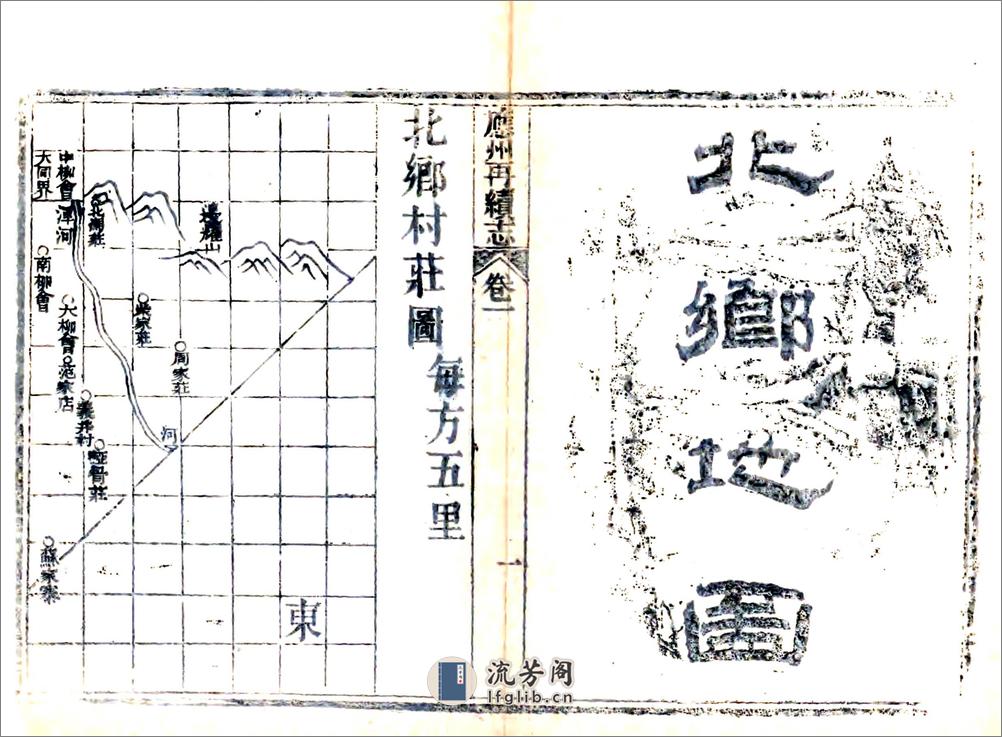 北鄉地圖
應州再續志
卷一
一
北鄉村莊圖
每方五里
邊耀山
北湖莊
中柳會
大同界
渾河
南柳會
大柳會
范家店
柴家莊
周家莊
義井村
啞哥莊
河
蘇家寨
東
流芳阁
lfglib.cn